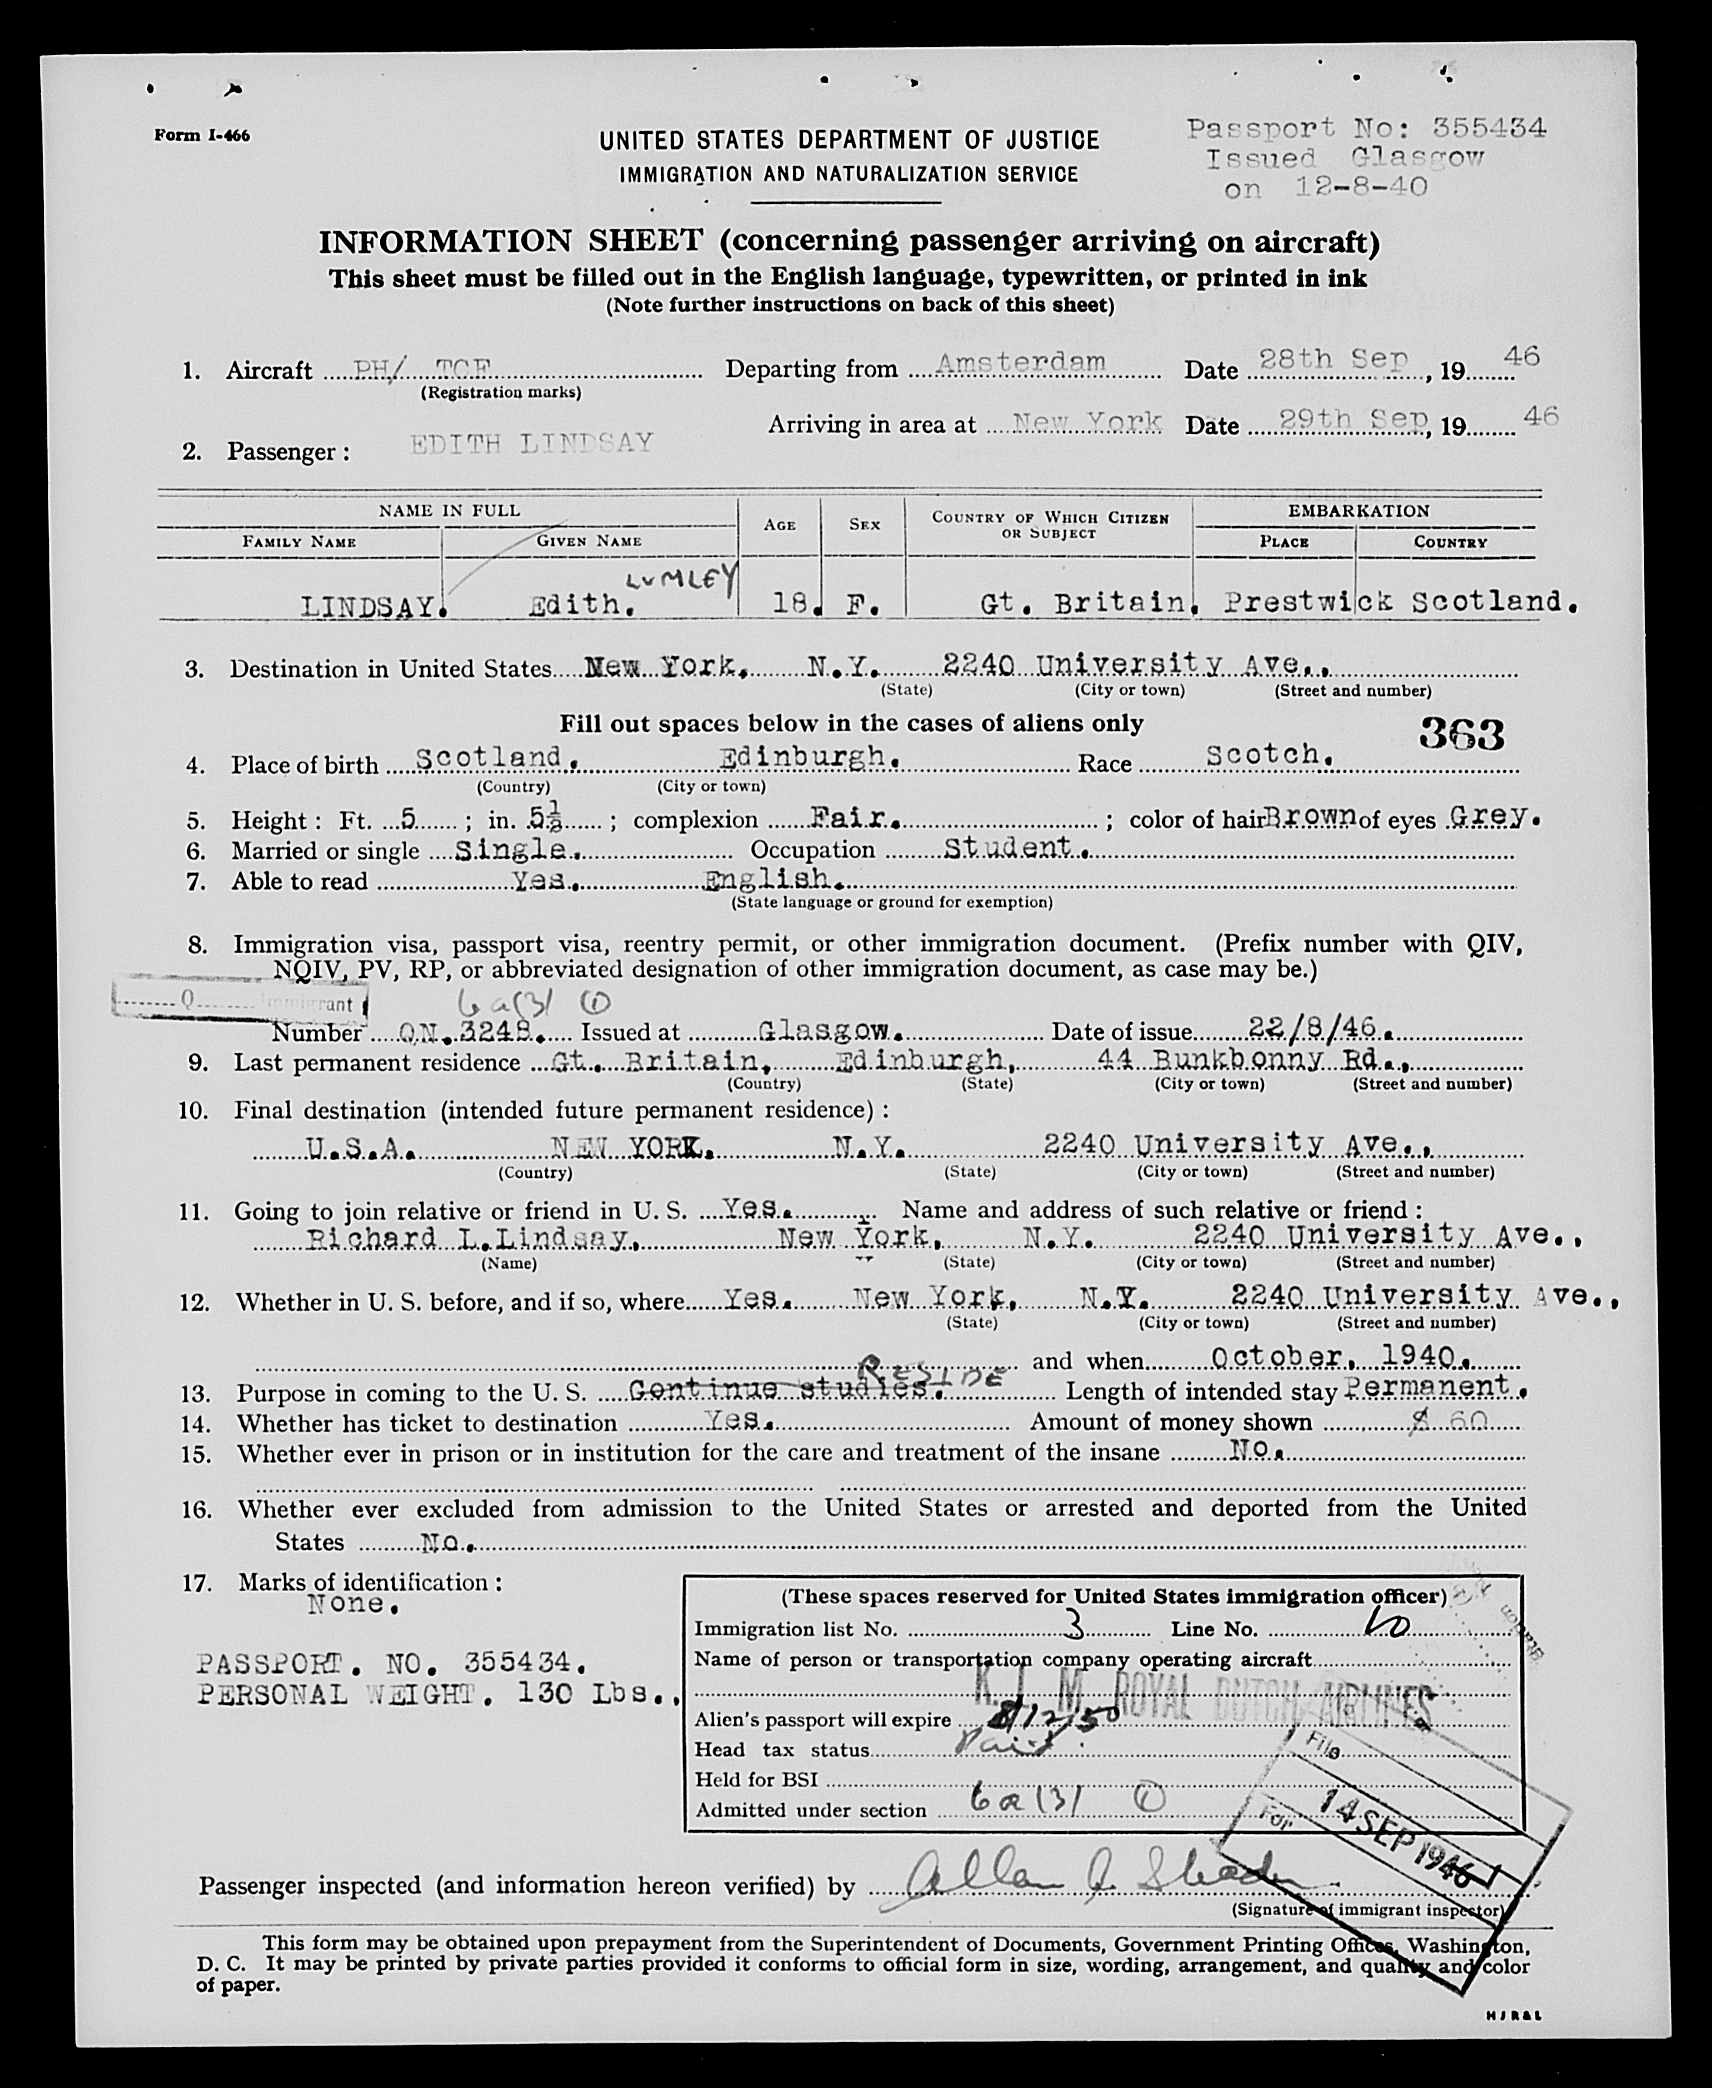 Form I-466
UNITED STATES DEPARTMENT OF JUSTICE
IMMIGRATION AND NATURALIZATION SERVICE
Passport No: 355434
Issued Glasgow
on 12-8-40
INFORMATION SHEET (concerning passenger arriving on aircraft)
This sheet must be filled out in the English language, typewritten, or printed in ink
(Note further instructions on back of this sheet)
1. Aircraft PH/ TCF Departing from Amsterdam Date 28th Sep, 19 46
(Registration marks)
Arriving in area at New York Date 29th Sep, 19 46
2. Passenger: EDITH LINDSAY
NAME IN FULL AGE SEX COUNTRY OF WHICH CITIZEN OR SUBJECT EMBARKATION
FAMILY NAME GIVEN NAME PLACE COUNTRY
LUMLEY
LINDSAY. Edith. 18. F. Gt. Britain. Prestwick Scotland.
3. Destination in United States New York, N.Y. 2240 University Ave.,
(State) (City or town) (Street and number)
Fill out spaces below in the cases of aliens only
363
4. Place of birth Scotland. Edinburgh. Race Scotch.
(Country) (City or town)
5. Height: Ft. 5 ; in. 5½ ; complexion Fair. ; color of hair Brown of eyes Grey.
6. Married or single Single. Occupation Student.
7. Able to read Yes. English.
(State language or ground for exemption)
8. Immigration visa, passport visa, reentry permit, or other immigration document. (Prefix number with QIV,
NQIV, PV, RP, or abbreviated designation of other immigration document, as case may be.)
Q Immigrant 6a(3) ①
Number QN. 3248. Issued at Glasgow. Date of issue 22/8/46.
9. Last permanent residence Gt. Britain, Edinburgh, 44 Bunkbonny Rd.,
(Country) (State) (City or town) (Street and number)
10. Final destination (intended future permanent residence):
U.S.A. NEW YORK. N.Y. 2240 University Ave.,
(Country) (State) (City or town) (Street and number)
11. Going to join relative or friend in U. S. Yes. Name and address of such relative or friend:
Richard L. Lindsay, New York, N.Y. 2240 University Ave.,
(Name) (State) (City or town) (Street and number)
12. Whether in U. S. before, and if so, where Yes. New York, N.Y. 2240 University Ave.,
(State) (City or town) (Street and number)
and when October, 1940.
RESIDE
13. Purpose in coming to the U. S. Continue studies. Length of intended stay Permanent.
14. Whether has ticket to destination Yes. Amount of money shown $ 60
15. Whether ever in prison or in institution for the care and treatment of the insane No.
16. Whether ever excluded from admission to the United States or arrested and deported from the United
States No.
17. Marks of identification:
None.
PASSPORT. NO. 355434.
PERSONAL WEIGHT. 130 Lbs.,
(These spaces reserved for United States immigration officer)
Immigration list No. 3 Line No. 10
Name of person or transportation company operating aircraft
K. L. M. ROYAL DUTCH AIRLINES
Alien's passport will expire 8/12/50
Head tax status Paid.
Held for BSI
Admitted under section 6a(3) ①
File
For
14 SEP 1946
Passenger inspected (and information hereon verified) by
(Signature of immigrant inspector)
This form may be obtained upon prepayment from the Superintendent of Documents, Government Printing Office, Washington,
D. C. It may be printed by private parties provided it conforms to official form in size, wording, arrangement, and quality and color
of paper.
HJR&L